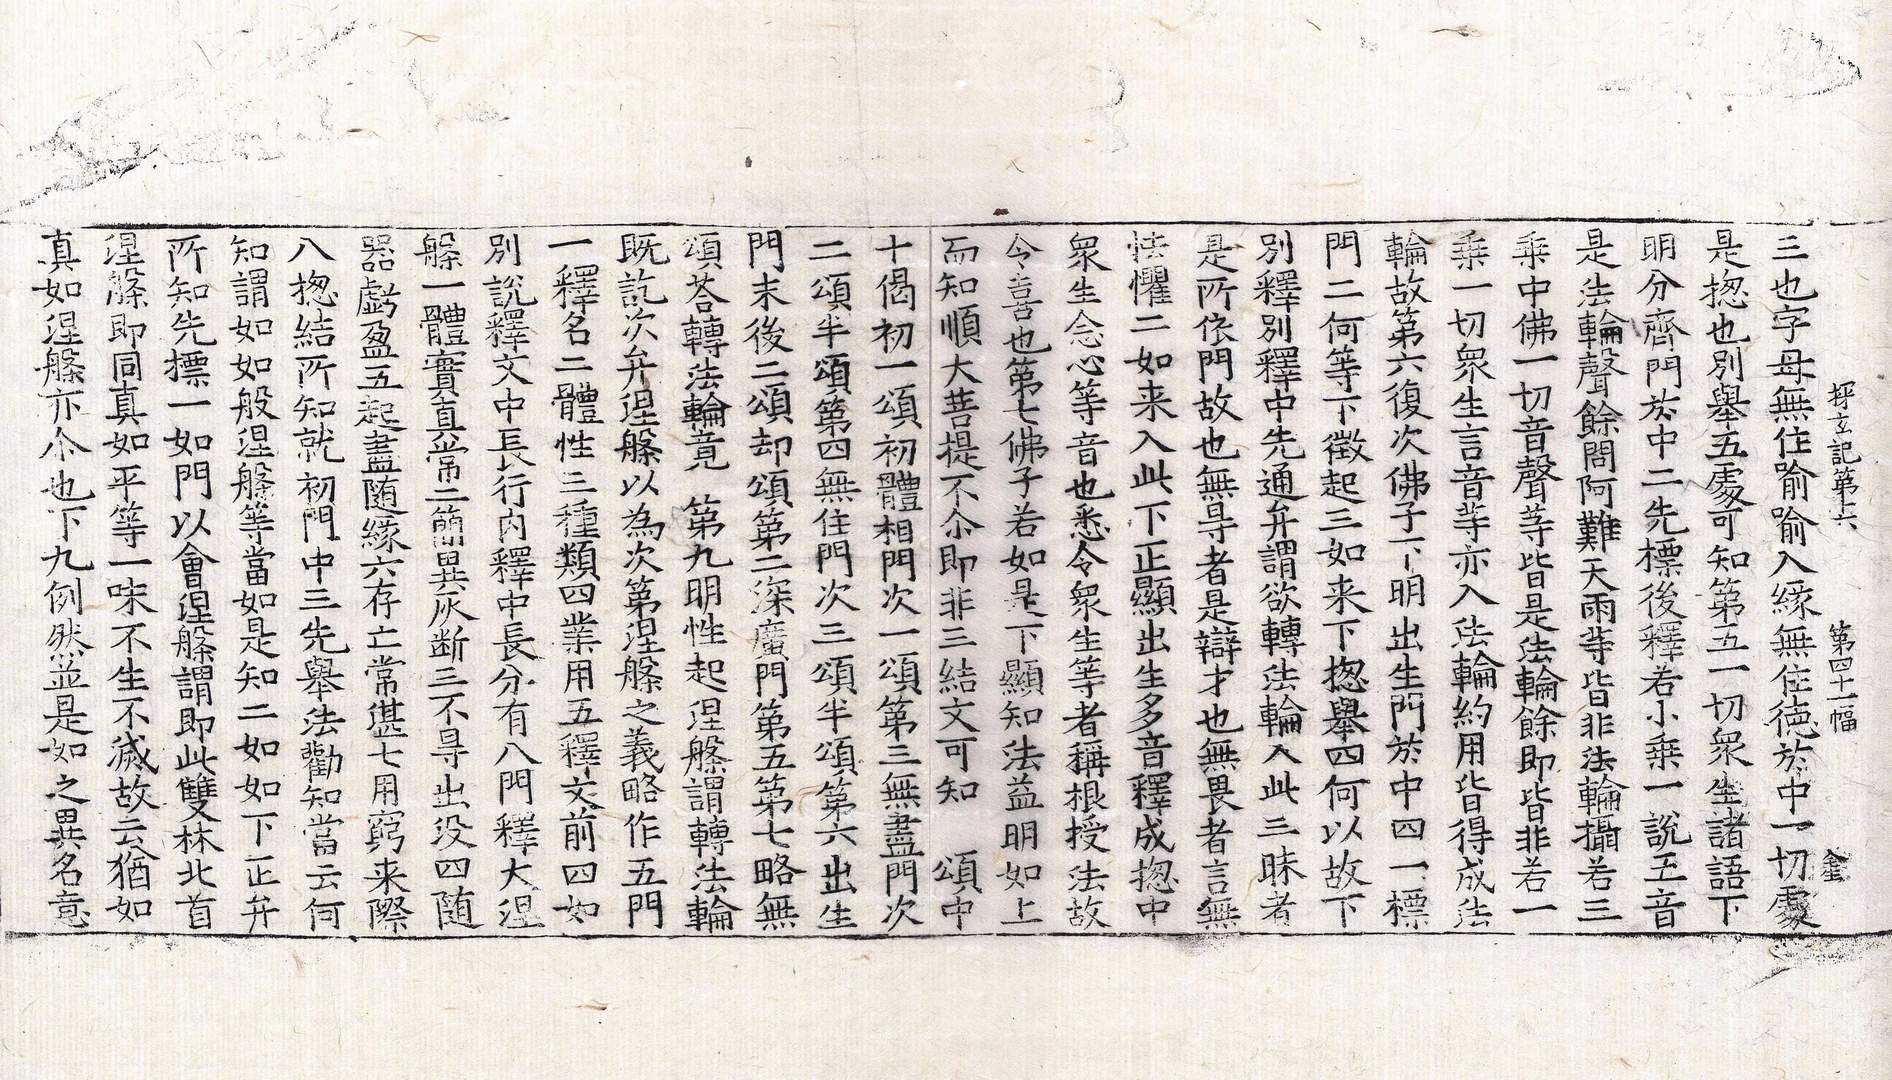 探玄記第十六　第四十一幅　奎
三也字母無住喻喻入緣無住徳於中一切處
是揔也別舉五處可知第五一切衆生諸語下
明分齊門於中二先標後釋若小乘一說五音
是法輪聲餘問阿難天雨等皆非法輪攝若三
乘中佛一切音聲等皆是法輪餘即皆非若一
乘一切衆生言音等亦入法輪約用皆得成法
輪故第六復次佛子下明出生門於中四一標
門二何等下徵起三如来下揔舉四何以故下
別釋別釋中先通弁謂欲轉法輪入此三昧者
是所依門故也無㝵者是辯才也無畏者言無
怯懼二如来入此下正顯出生多音釋成揔中
衆生念心等音也悉令衆生等者稱根授法故
令喜也第七佛子若如是下顯知法益明如上
而知順大菩提不尒即非三結文可知　頌中
十偈初一頌初體相門次一頌第三無盡門次
二頌半頌第四無住門次三頌半頌第六出生
門末後二頌却頌第二深廣門第五第七略無
頌荅轉法輪竟　第九明性起涅槃謂轉法輪
既訖次弁涅槃以為次第涅槃之義略作五門
一釋名二體性三種類四業用五釋文前四如
別說釋文中長行內釋中長分有八門釋大涅
槃一體實真常二簡異灰断三不㝵出没四随
器虧盈五起盡随緣六存亡常湛七用窮来際
八揔結所知就初門中三先舉法勸知當云何
知謂如如般涅槃等當如是知二如如下正弁
所知先標一如門以會涅槃謂即此雙林北首
涅槃即同真如平等一味不生不滅故云猶如
真如涅槃亦尒也下九例然並是如之異名意